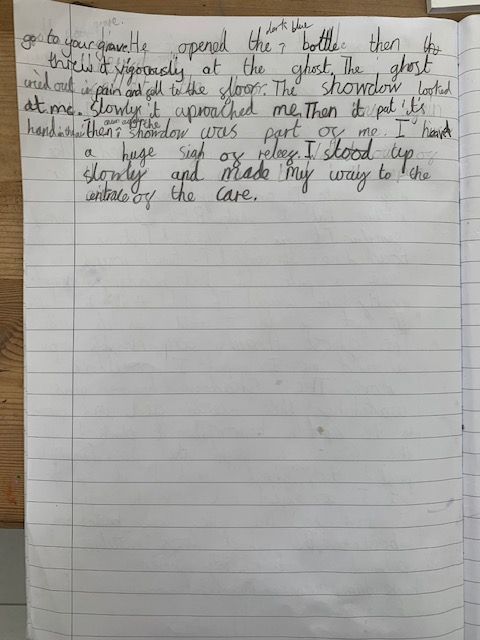 dark blue
go to your grave. He opened the, bottle then
threw it vigorously at the ghost. The ghost
cried out in pain and fell to the floor. The showdow looked
at me. Slowly it aproached me. Then it put it's
hand in the air
then, showdow was part of me. I heaved
a huge sigh of releef. I stood up
slowly and made my way to the
entrace of the cave.